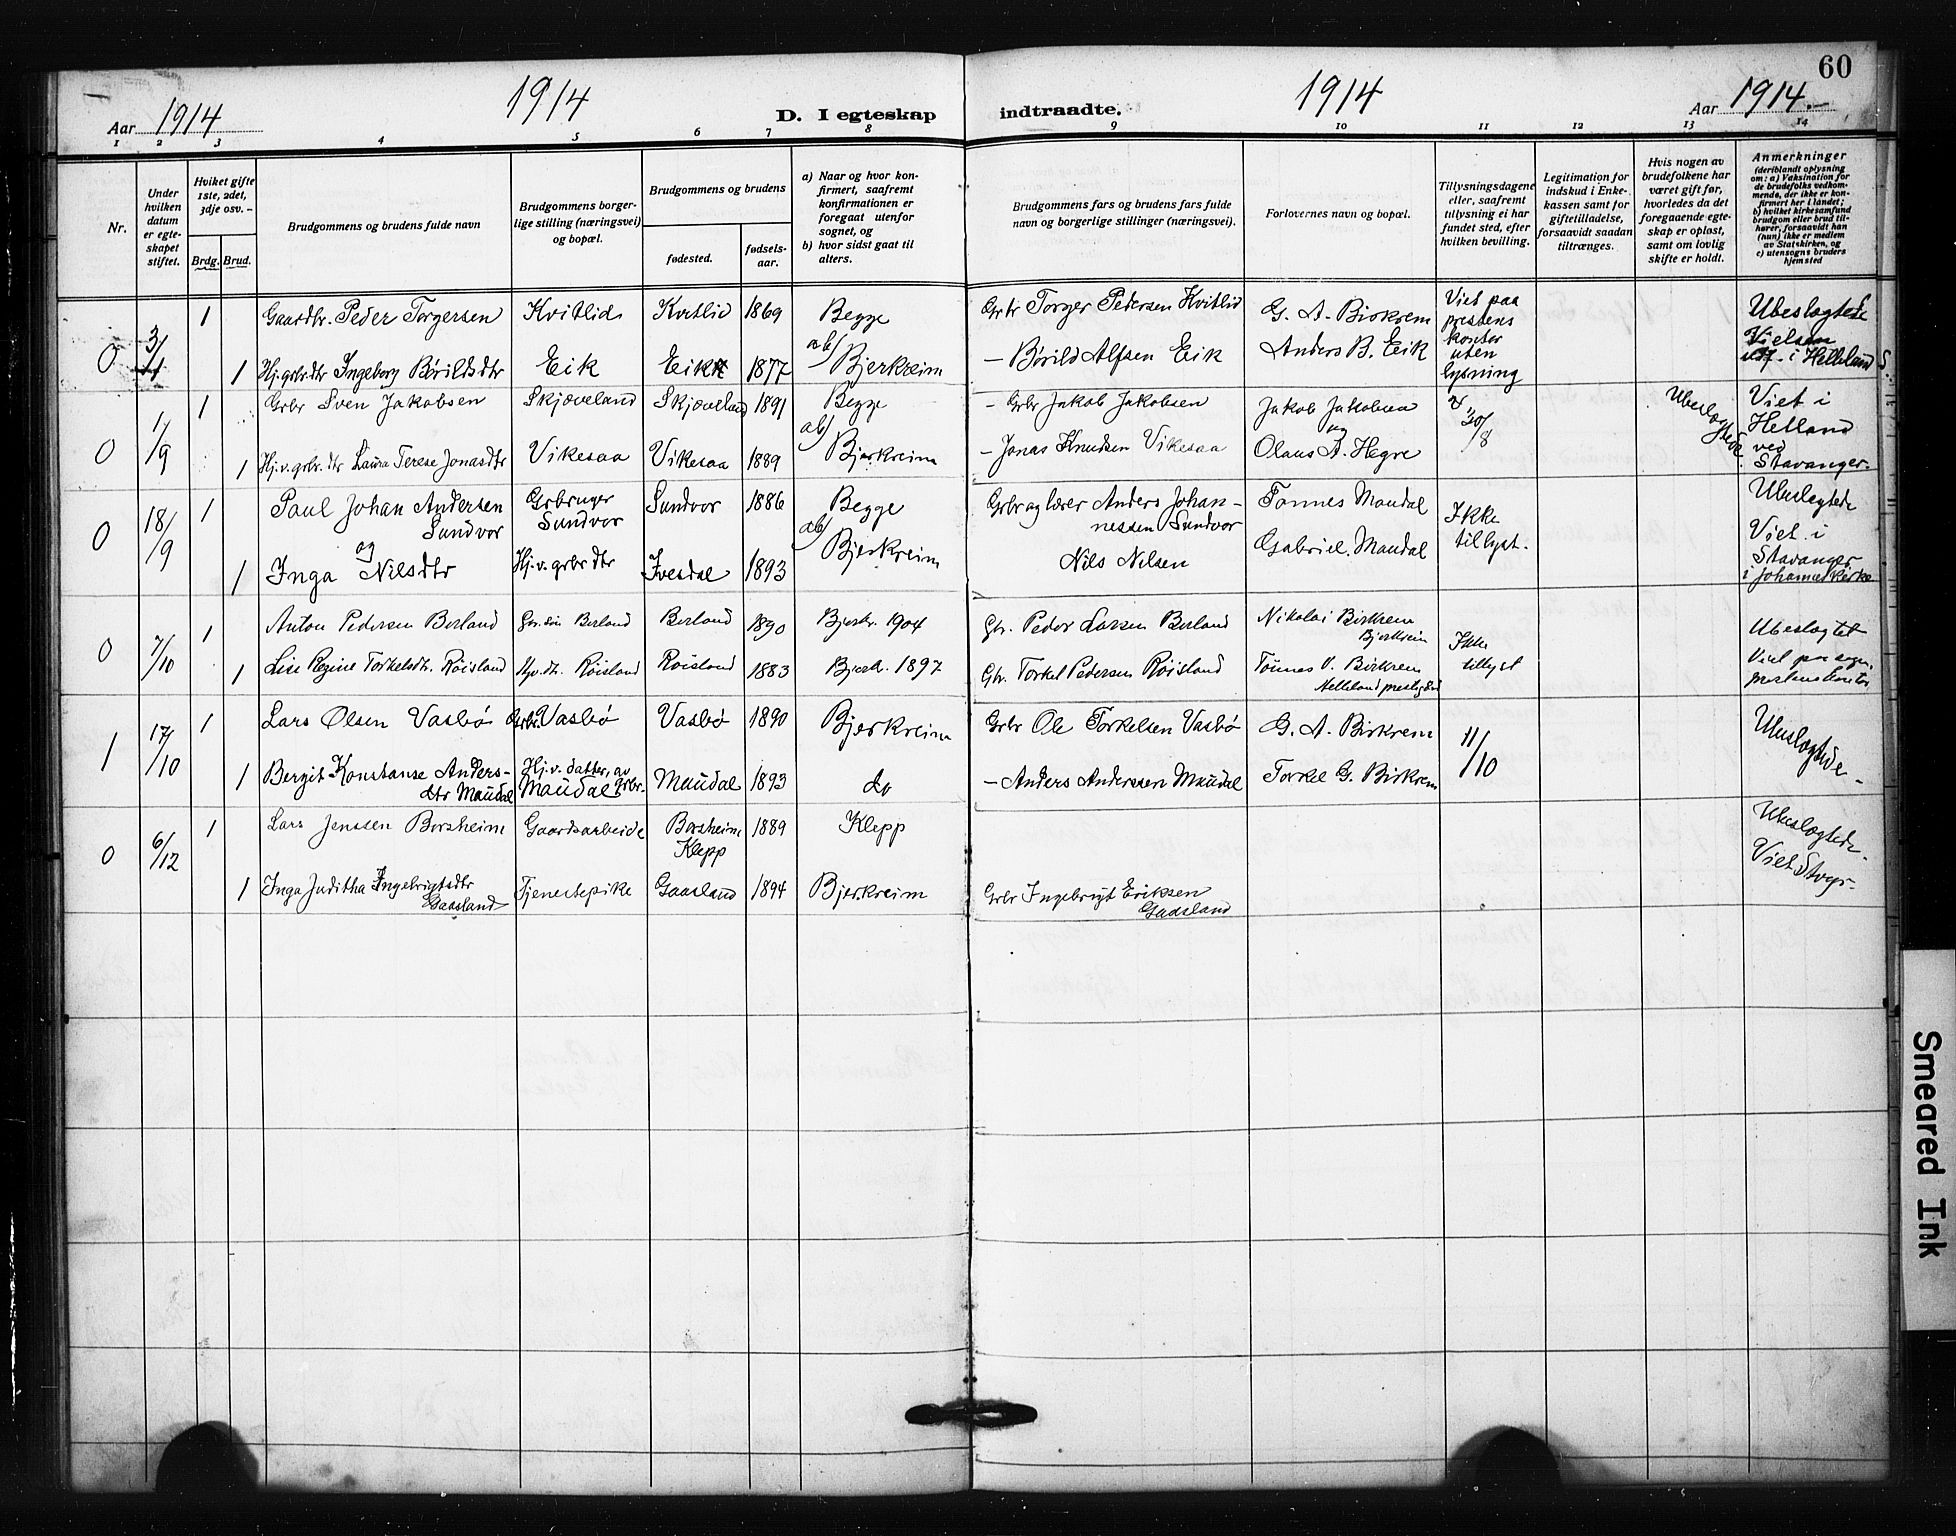 60
Aar 1914
1914
D. I egteskap
indtraadte.
1914
Aar 1914.-
1 2 3 4 5 6 7 8 9 10 11 12 13 14
Nr.
Under hvilken datum er egteskapet stiftet.
Hviket gifte 1ste, 2det, 3dje osv. -
Brdg. Brud.
Brudgommens og brudens fulde navn
Brudgommens borgerlige stilling (næringsvei) og bopæl.
Brudgommens og brudens
fødested.
fødselsaar.
a) Naar og hvor konfirmert, saafremt konfirmationen er foregaat utenfor sognet, og
b) hvor sidst gaat til alters.
Brudgommens fars og brudens fars fulde navn og borgerlige stillinger (næringsvei).
Forlovernes navn og bopæl.
Tillysningsdagene eller, saafremt tillysning ei har fundet sted, efter hvilken bevilling.
Legitimation for indskud i Enkekassen samt for giftetilladelse, forsaavidt saadan tiltrænges.
Hvis nogen av brudefolkene har været gift før, hvorledes da det foregaaende egteskap er opløst, samt om lovlig skifte er holdt.
Anmerkninger
(deriblandt oplysning om: a) Vaksination for de brudefolks vedkommende, der ikke er konfirmert her i landet; b) hvilket kirkesamfund brudgom eller brud tilhører, forsaavidt han (hun) ikke er medlem av Statskirken, og c) utensogns bruders hjemsted
0 3/4 1 Gaardbr. Peder Torgersen Kvitlid Kvitlid 1869 Begge Grbr Torger Pedersen Kvitlid G. A. Birkrem Viet paa prestens kontor uten lysning Ubeslegtede
1 Hj. grbr dtr Ingeborg Børildsdtr Eik Eik 1877 ab/ Bjerkreim - Børild Alfsen Eik Anders B. Eik Vielsen i Helleland
0 1/9 1 Grbr Sven Jakobsen Skjæveland Skjæveland 1891 Begge - Grbr Jakob Jakobsen Jakob Jakobsen og 30/8 Ubeslegtede. Viet i Helland
1 Hj.v.grbr.dtr Laura Terese Jonasdtr Vikesaa Vikesaa 1889 ab/ Bjerkreim - Jonas Knudsen Vikesaa Olaus A. Hegre ved Stavanger.
0 18/9 1 Paul Johan Andersen Sundvor Grbruger Sundvor Sundvor 1886 Begge Grbr og lærer Anders Johannessen Sundvor Tønnes Maudal Ikke tillyst. Ubeslegtede
og
1 Inga Nilsdtr Hj.v. grbr dtr Ivesdal 1893 ab/ Bjerkreim Nils Nilsen Gabriel Maudal Viet i Stavanger i Johannes kirke
0 7/10 1 Anton Pedersen Berland Gbr. søn Berland Berland 1890 Bjerkr. 1904 Gbr. Peder Larsen Berland Nikolai Birkrem Bjerkreim Ikke tillyst Ubeslegtet
1 Lise Regine Torkelsdtr. Røisland Hjv. dt. Røisland Røisland 1883 Bjerk. 1897 Gbr. Torkel Pedersen Røisland Tønnes V. Birkrem Helleland prestegjeld Viet paa sogneprestens kontor
1 17/10 1 Lars Olsen Vasbø Grbr. Vasbø Vasbø 1890 Bjerkreim Grbr Ole Torkelsen Vasbø G. A. Birkrem 11/10 Ubeslegtede -
1 Bergit Konstanse Andersdtr Maudal Hj.v. datter av grbr. Maudal Maudal 1893 do - Anders Anderssen Maudal Torkel G. Birkrem
0 6/12 1 Lars Jenssen Borsheim Gaardsarbeide Borsheim Klepp 1889 Klepp Ubeslegtede.
1 Inga Juditha Ingebrigtsdtr Gaasland Tjenestepike Gaasland 1894 Bjerkreim Grbr Ingebrigt Eriksen Gaasland Viet Stvgr-
Smeared Ink